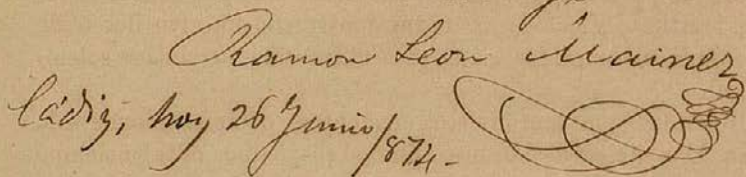 Ramon Leon Mainez
Cádiz, hoy 26 Junio/874.-